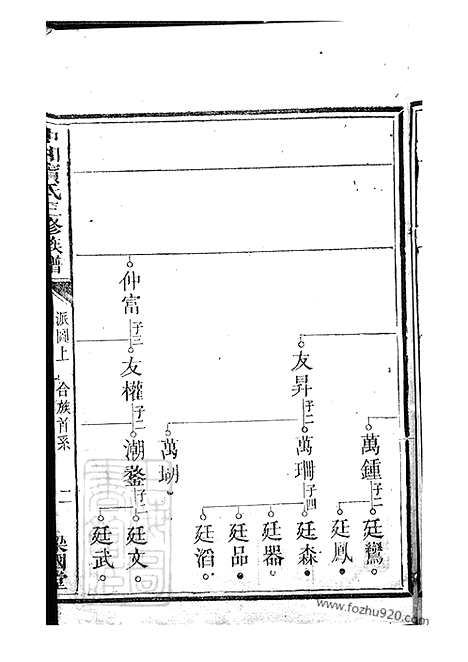 萬鍾子二
廷鸞
廷鳳
友昇子二
萬珊子四
廷森
廷器
廷品
廷滔
萬瑚
仲富子三
友權子二
潮鏊子二
廷文
廷武
氏三修族譜
派圖上
合族首系
二
國堂
www.fozhu920.com